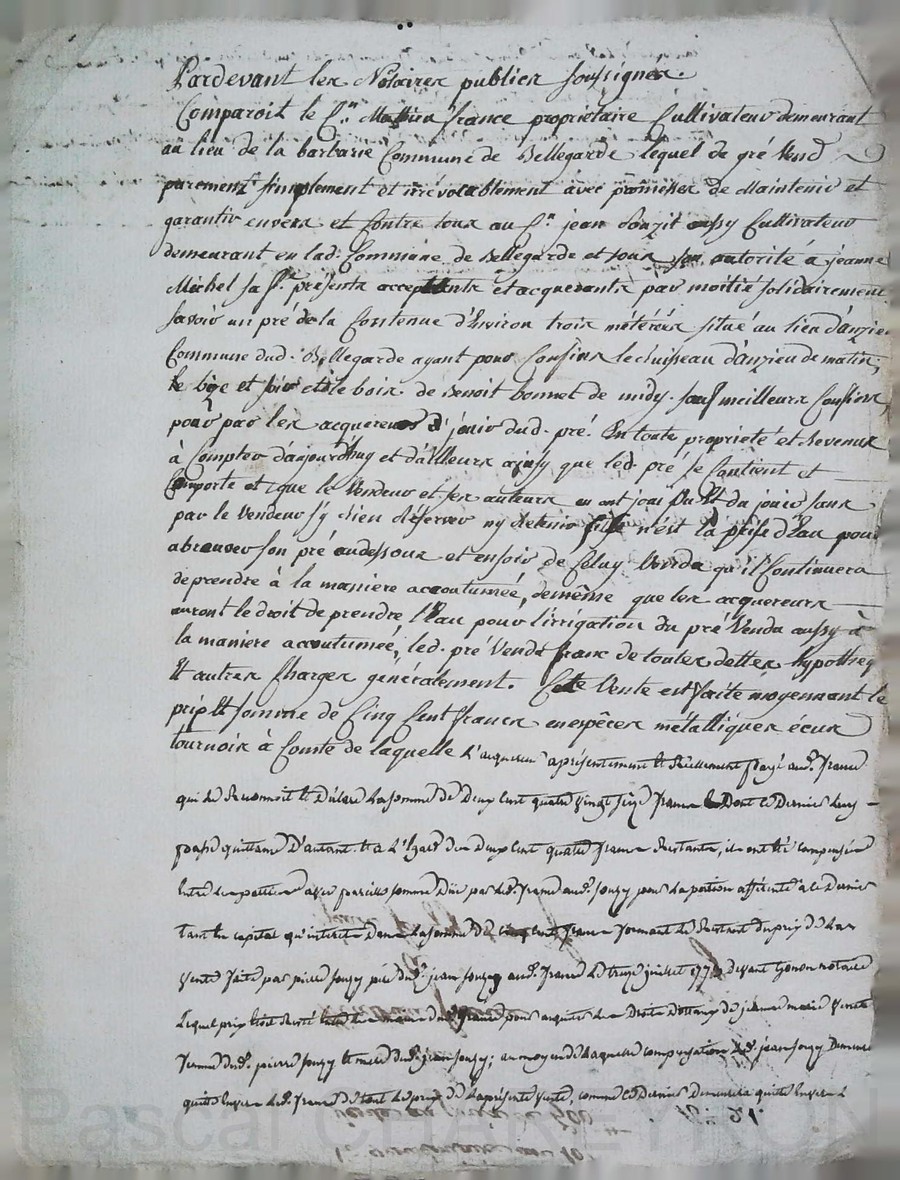 Pardevant les Notaires publics soussignés.
Comparoit le Sr. Mathieu france propriétaire Cultivateur demeurant
au lieu de la barbarie Commune de Bellegarde lequel de gré Vend
purement simplement et irrévocablement avec promesses de Maintenir et
garantir envers et Contre tous au Sr. jean aussy Cultivateur
demeurant en lad. Commune de Bellegarde et sous son autorité à jeanne
sa f. présents acceptants et acquerants par moitié solidairement
savoir un pré de la Contenue d'Environ trois métérés situé au lieu d'anzieu
Commune dud. Bellegarde ayant pour Confins le Ruisseau d'anzieu de matin,
de bize et soir et le bois de Benoit bonnet de midy. sauf meilleurs Confins,
pour par les acquereurs jouir dud. pré En toute propriété et Revenus
à Compter d'aujourd'huy et d'ailleurs ainsy que led. pré se Contient et
Comporte et que le Vendeur et ses auteurs en ont joui Pu Et du jouir sans
par le Vendeur s'y Rien Réserver ny Retenir si n'est la prise d'Eau pour
abreuver son pré audessous et ensoir de Celuy Vendu qu'il Continuera
de prendre à la maniere accoutumée, demême que les acquereurs
auront le droit de prendre l'Eau pour l'irrigation du pré Vendu aussy à
la maniere accoutumée, led. pré Vendu franc de toutes dettes hypotheq
Et autres Charges généralement. Cette Vente est faite moyennant le
prix Et somme de Cinq Cent francs en espèces métalliques écus
tournois à Comte de laquelle l'acquereur a présentement et Réellement payé aud. france
qui le Reconnoit et Déclare la somme de Deux Cent quatre vingt seize francs Dont ce Dernier
passe quittance D'autant. Et a L'Egard des Deux Cent quatre francs Restants, ils ont été compensés
Entre les parties avec pareille somme Due par led. france aud. pour la portion afférente à ce Dernier
tant en capital qu'interets Dans la somme de cinq cent francs formant le Restant du prix de la
Vente faite par pierre père dud. jean aud. france Le treize juillet devant notaire
Lequel prix étoit Resté dud. france pour assurer les Droits de jeanne marie
femme dud. pierre et mere dud. jean ; au moyen de laquelle compensation led. jean Demeure
quitte Envers led. france de tout le prix de la présente Vente, comme ce Dernier Demeurera quitte Envers
Pascal CHAREYRON